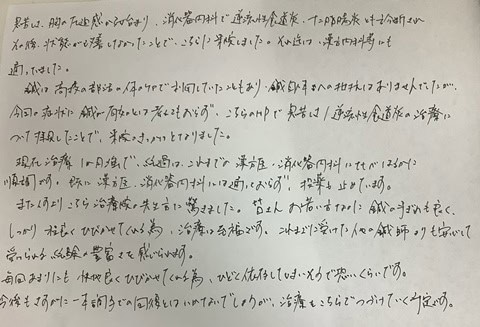 実はい、胸の圧迫感から始まり、消化器内科で逆流性食道炎、十二指腸炎と診断され
その後、状態が改善しなかったことで、こちらに来院しました。その近は、漢方内科等にも
通っていました。
鍼は高校の部活の体のケアで利用していたこともあり、鍼自体への抵抗はありませんでしたが、
今回の症状に鍼が有効とは考えておらず、こちらのHPで実はい逆流性食道炎の治療に
ついて拝見したことで、来院のきっかけとなりました。
現在治療1か月強で、経過は、これまでの漢方医、消化器内科に比べはるかに
順調です。既に漢方医、消化器内科には通っておらず、投薬も止めています。
また何よりこちら治療院の先生方に驚きました。皆さんお若い方なのに鍼のすじも良く、
しっかり程良くひびかせてくれる為、治療は至極です。これまでに受けた他の鍼師よりも安心して
受けられる経験の豊富さを感じられます。
毎回あまりにも快く良くひびかせてくれる為、ひどく依存してしまいそうで恐いくらいです。
今後もさすがに一本調子での回復とはいかないでしょうが、治療をこちらでつづけていく予定です。